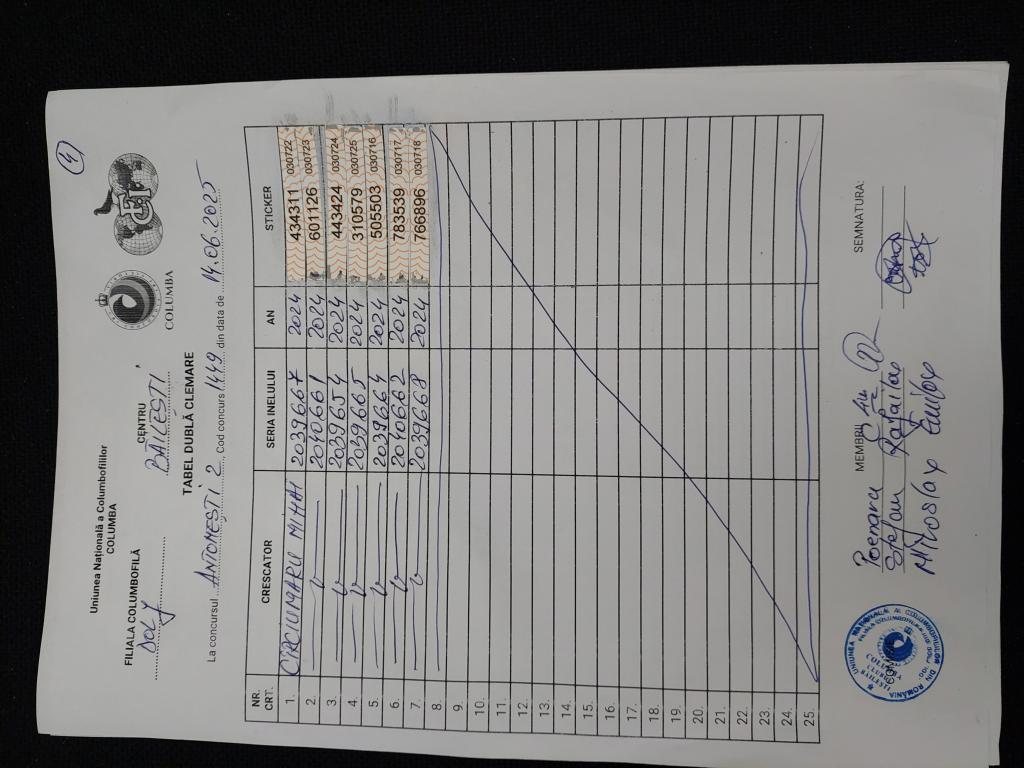 4
Uniunea Națională a Columbofililor
COLUMBA
FCI
COLUMBA
FILIALA COLUMBOFILĂ
DOLJ
CENTRU
BĂILEȘTI
TABEL DUBLĂ CLEMARE
La concursul ANTONESTI 2, Cod concurs 1449 din data de 14.06.2025
NR. CRT. CRESCATOR SERIA INELULUI AN STICKER
1. CIRCIUMARU MIHAI 2039667 2024 434311 030722
2. 2040661 2024 601126 030723
3. 2039654 2024 443424 030724
4. 2039665 2024 310579 030725
5. 2039664 2024 505503 030716
6. 2040662 2024 783539 030717
7. 2039668 2024 766896 030718
8.
9.
10.
11.
12.
13.
14.
15.
16.
17.
18.
19.
20.
21.
22.
23.
24.
25.
MEMBRII
SEMNATURA:
Poenaru
Stefan
Miroslav
UNIUNEA NAȚIONALĂ A COLUMBOFILILOR DIN ROMÂNIA
COLUMBA
CLUBUL
BĂILEȘTI